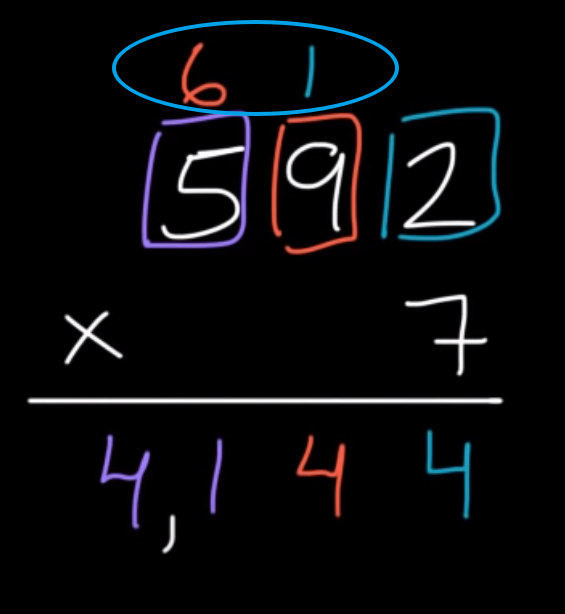 6 1
592
× 7
4,144